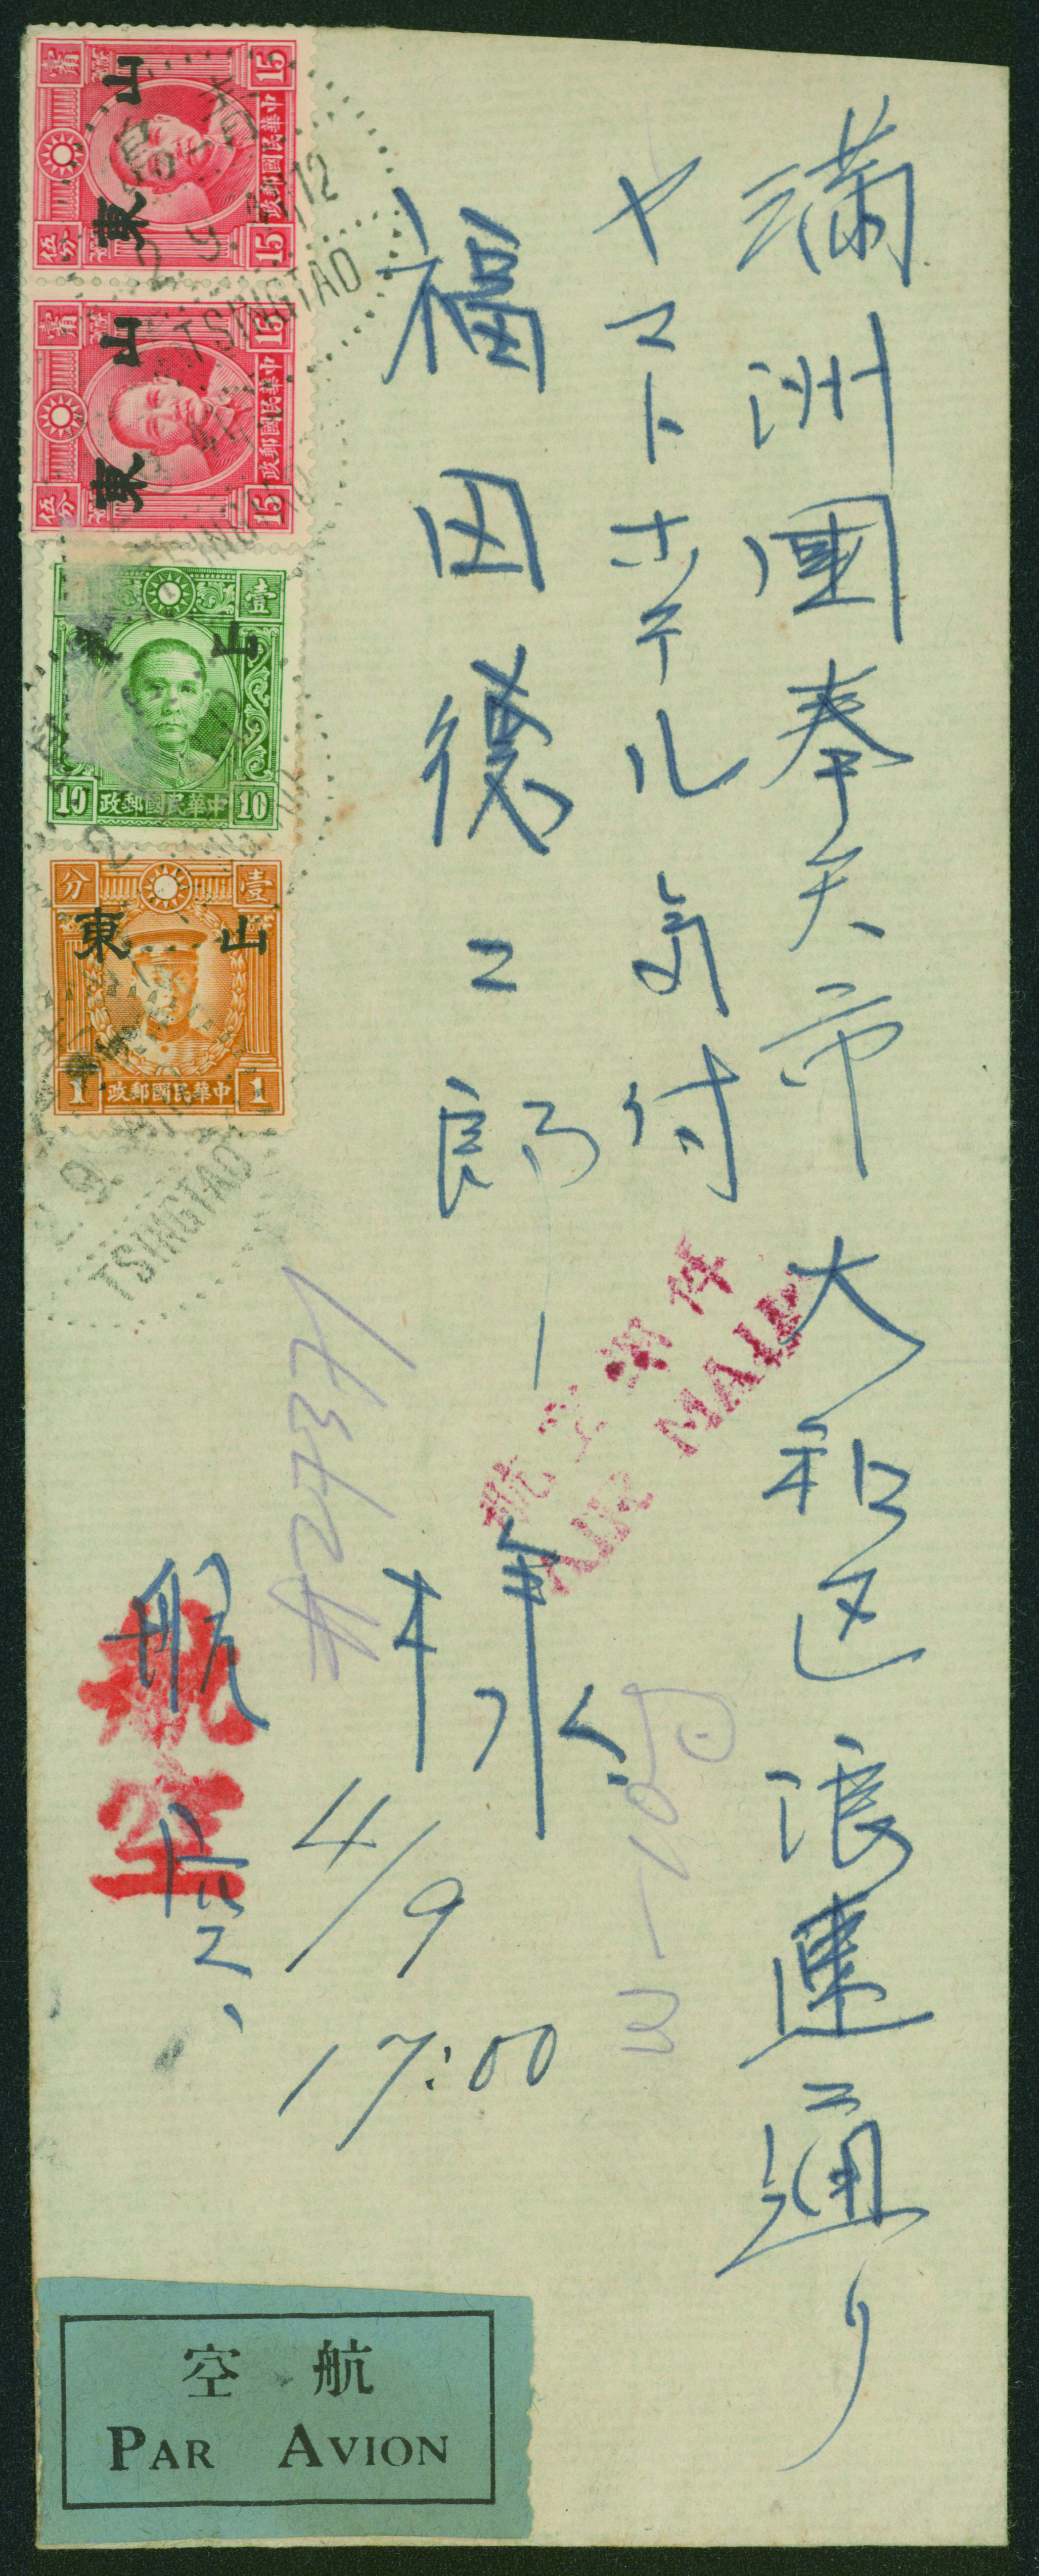 満洲國奉天市大和区浪速通り
ヤマトホテル気付
福田徳二郎
航空郵件
AIR MAIL
4/9
17:00
航空
航空
山東
15 15
中華民國郵政
山東
15 15
中華民國郵政
山
壹
10 中華民國郵政 10
分 壹
山東
1 中華民國郵政 1
青島
2.9.
12
TSINGTAO
TSINGTAO
航空
PAR AVION